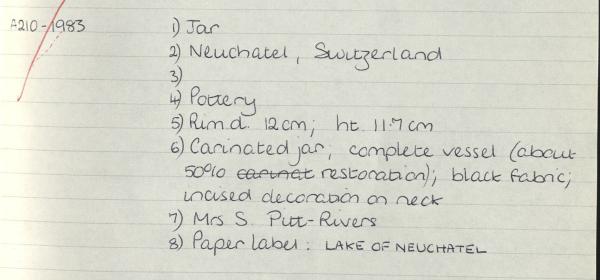 A210-1983 1) Jar
2) Neuchatel, Switzerland
3)
4) Pottery
5) Rim.d. 12cm; ht. 11.7cm
6) Carinated jar; complete vessel (about
50% restoration); black fabric;
incised decoration on neck
7) Mrs S. Pitt-Rivers
8) Paper label: LAKE OF NEUCHATEL